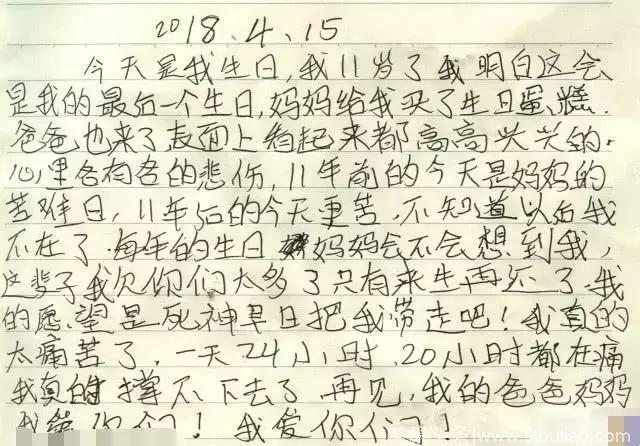 2018.4.15
今天是我生日,我11岁了我明白这会
是我的最后一个生日,妈妈给我买了生日蛋糕.
爸爸也来了表面上看起来都高高兴兴的.
心里各有各的悲伤,11年前的今天是妈妈的
苦难日,11年后的今天更苦.不知道以后我
不在了.每年的生日妈妈会不会想到我,
这辈子我欠你们太多了只有来生再还了.我
的愿望是死神早日把我带走吧!我真的
太痛苦了.一天24小时,20小时都在痛
我真的撑不下去了.再见,我的爸爸妈妈
我爱你们!我爱你们